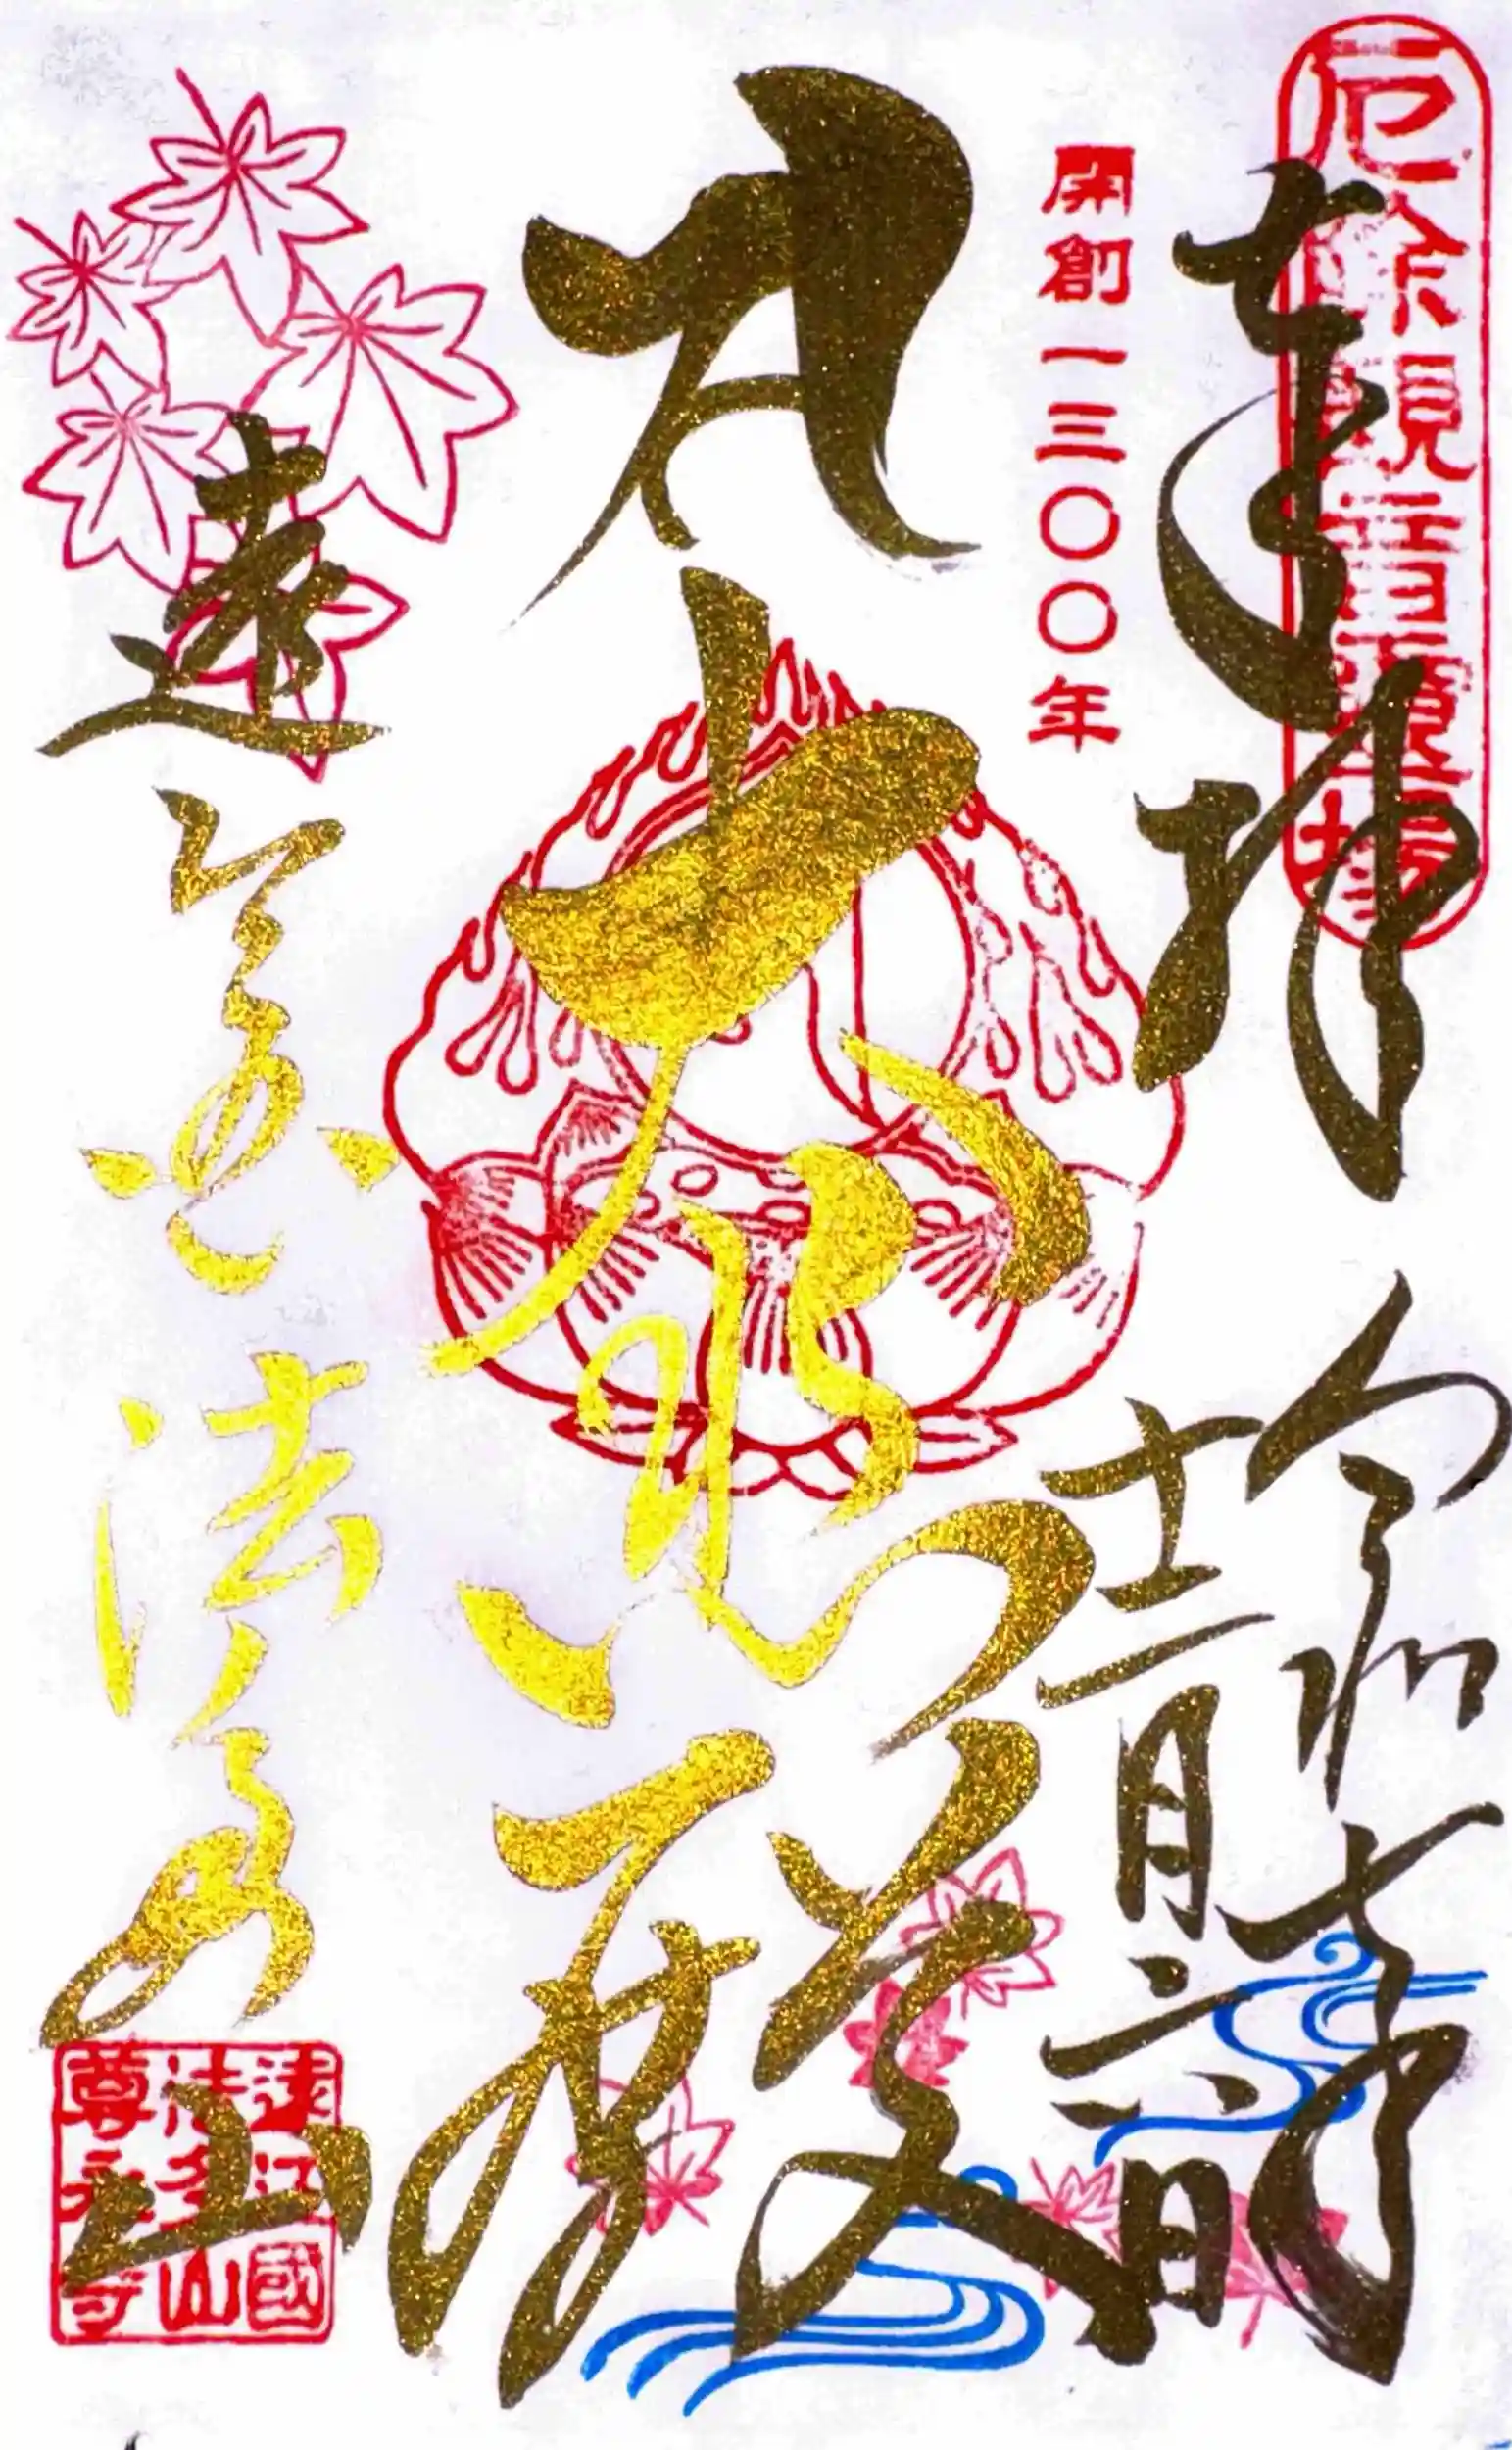 厄除観音霊場
奉拝
令和七年
十二月六日
開創一三〇〇年
大悲殿
遠
法多山
遠江國
法多山
尊永寺